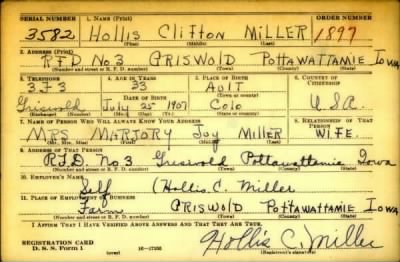 SERIAL NUMBER 1. NAME (Print) ORDER NUMBER
3582 Hollis Clifton Miller 1897
(First) (Middle) (Last)
2. ADDRESS (Print)
RFD No.3 Griswold Pottawattamie Iowa
(Number and street or R. F. D. number) (Town) (County) (State)
3. TELEPHONE 4. AGE IN YEARS 5. PLACE OF BIRTH 6. COUNTRY OF CITIZENSHIP
373 33 Ault
DATE OF BIRTH (Town or county)
Griswold July 25 1907 Colo USA
(Exchange) (Number) (Mo.) (Day) (Yr.) (State or country)
7. NAME OF PERSON WHO WILL ALWAYS KNOW YOUR ADDRESS 8. RELATIONSHIP OF THAT PERSON
Mrs Marjory Joy Miller Wife
(Mr., Mrs., Miss) (First) (Middle) (Last)
9. ADDRESS OF THAT PERSON
R.F.D. No 3 Griswold Pottawattamie Iowa
(Number and street or R. F. D. number) (Town) (County) (State)
10. EMPLOYER'S NAME
Self (Hollis. C. Miller
11. PLACE OF EMPLOYMENT OR BUSINESS
Farm Griswold Pottawattamie Iowa
(Number and street or R. F. D. number) (Town) (County) (State)
I AFFIRM THAT I HAVE VERIFIED ABOVE ANSWERS AND THAT THEY ARE TRUE.
REGISTRATION CARD
D. S. S. Form 1 (over) 16-17105 Hollis C. Miller
(Registrant's signature)